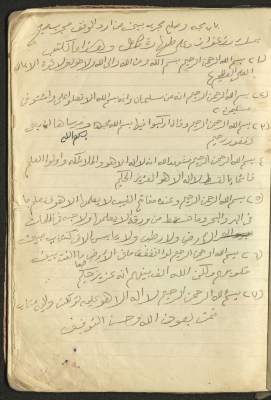 (١) بسم الله الرحمن الرحيم بسم الله ومن الله والى الله ولا حول ولا قوة الا بالله
العلي العظيم
(٢) بسم الله الرحمن الرحيم انه من سليمان وانه بسم الله الا تعلوا علي وأتوني
مسلمين
(٣) بسم الله الرحمن الرحيم وقال اركبوا فيها بسم الله مجريها ومرسيها ان ربي
لغفور رحيم
٤ بسم الله الرحمن الرحيم شهد الله انه لا اله الا هو والملائكة واولوا العلم
قائما بالقسط لا اله الا هو العزيز الحكيم
(٥) بسم الله الرحمن الرحيم وعنده مفاتح الغيب لا يعلمها الا هو ويعلم ما
في البر والبحر وما تسقط من ورقة الا يعلمها ولا حبة في ظلمات
الارض ولا رطب ولا يابس الا في كتاب مبين
(٦) بسم الله الرحمن الرحيم لو انفقت ما في الارض جميعا ما الفت بين
قلوبهم ولكن الله الف بينهم انه عزيز حكيم
(٧) بسم الله الرحمن الرحيم لا اله الا هو عليه توكلت واليه متاب
تمت بعون الله وحسن التوفيق